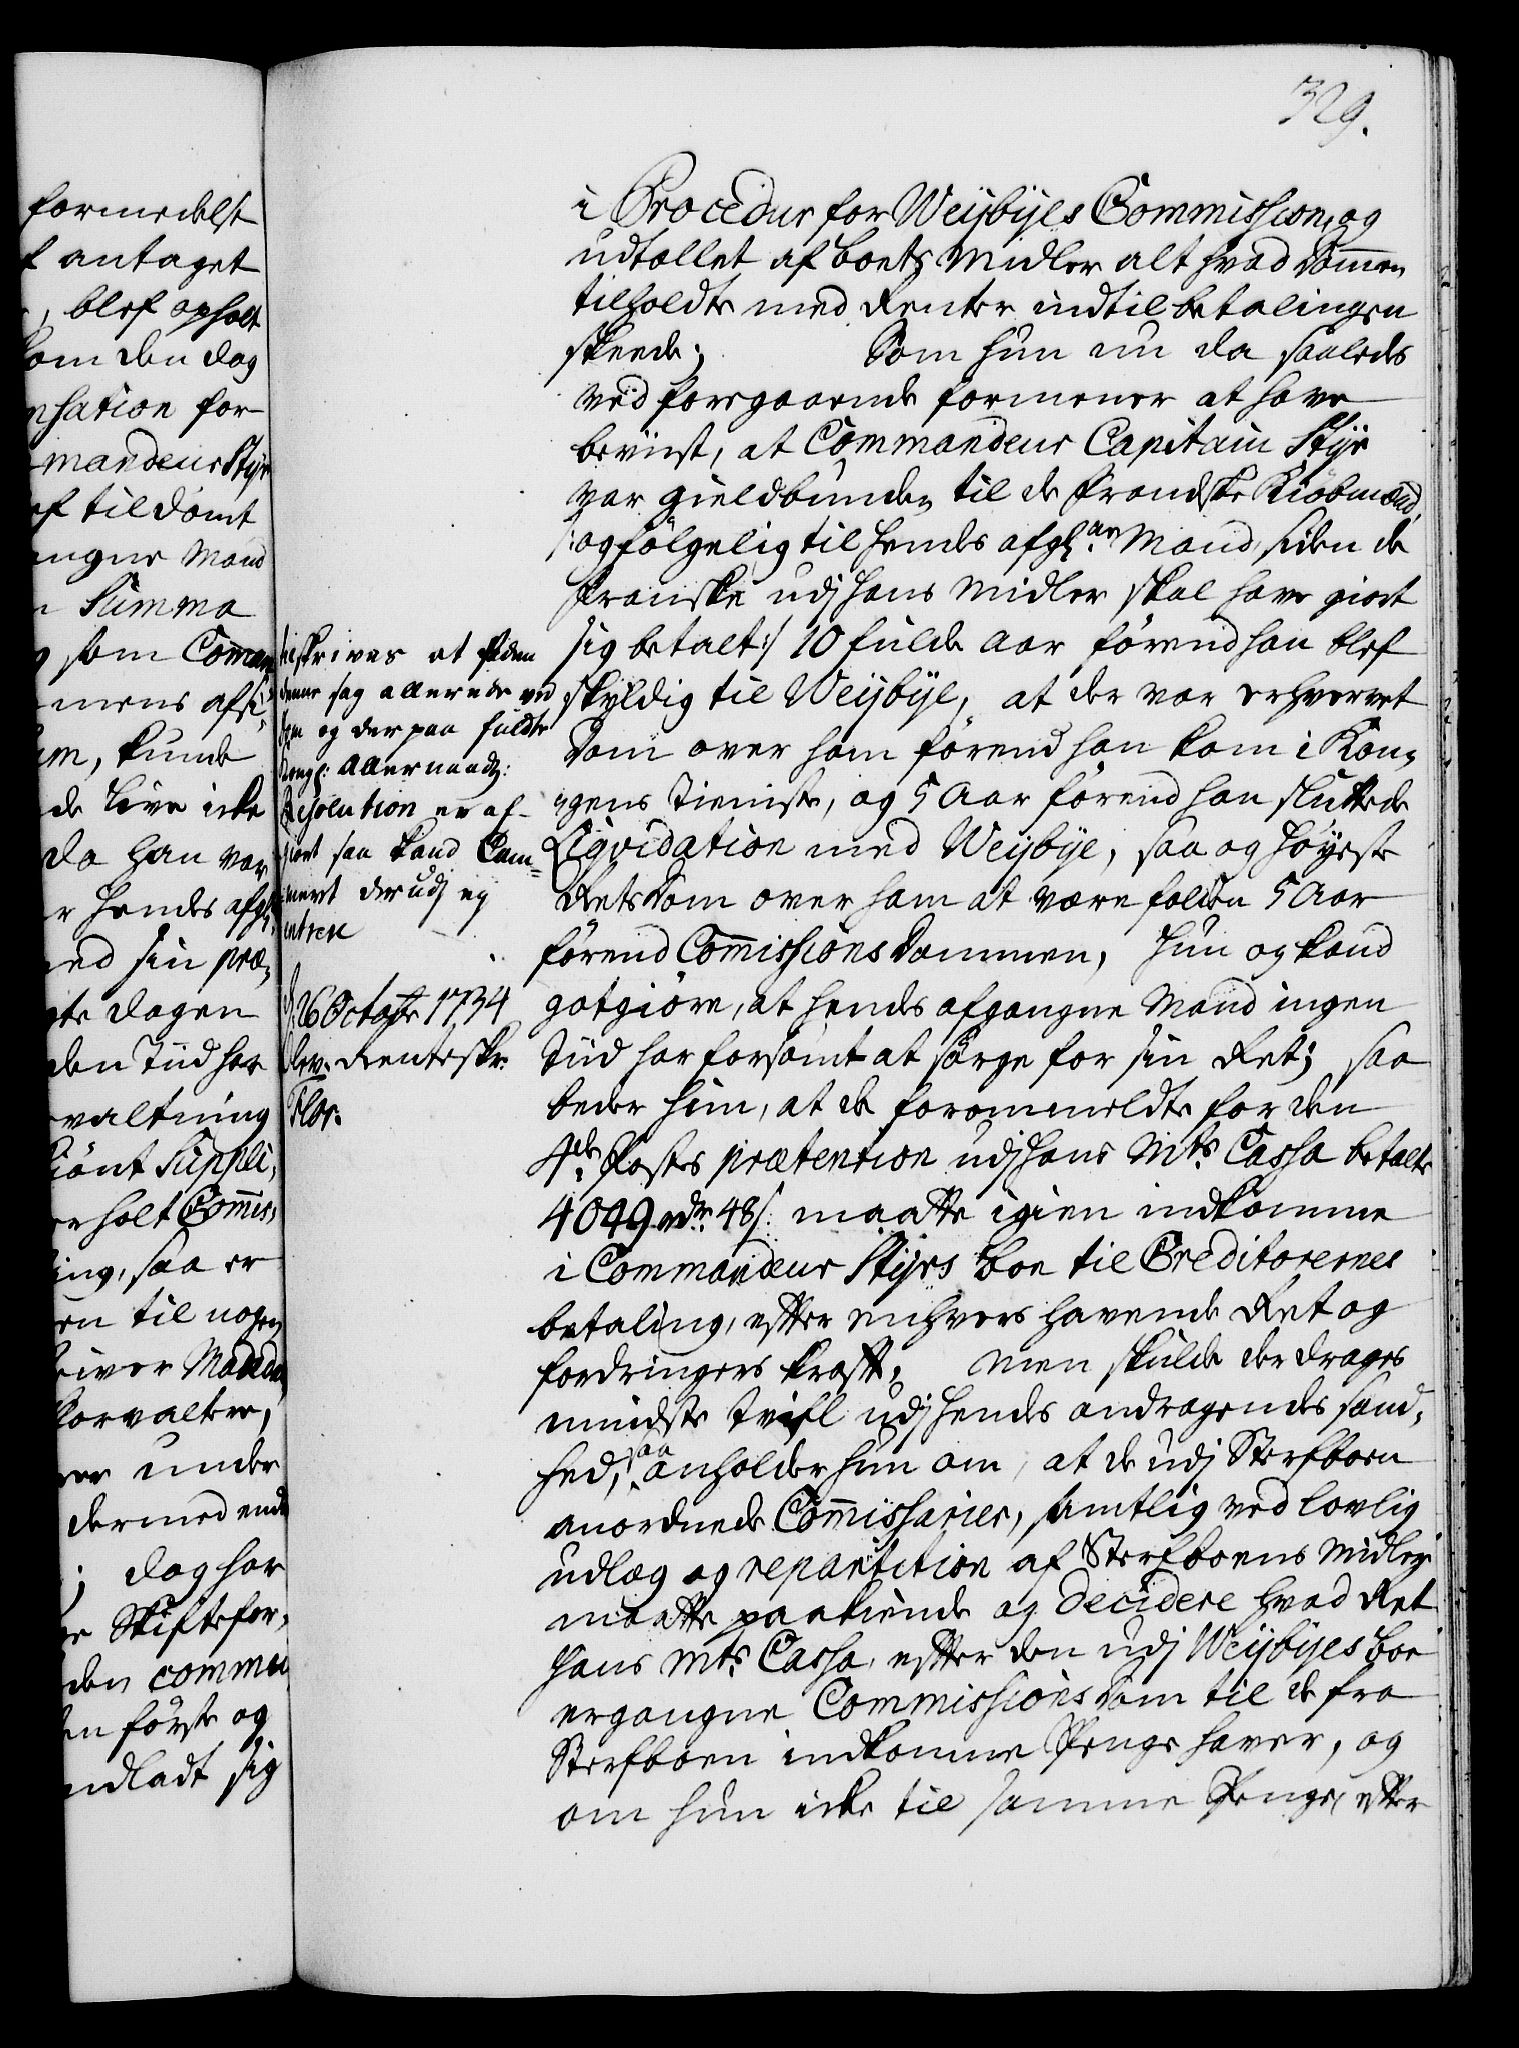 329.
formedelst
antaget
, blef opholt
om den dag
nsation for
mandeur Styr
ef tildömt
angne Mand
Summa
som Coman
mens afsi
um, kunde
de leve icke
da han var
r hendes afgl:
ned sin præ,
gte dagen
den Tiid har
rvaltning
kiönt Suppli,
erholt Commis,
ing, saa er
en til nogen
river Mandd
forvaltere,
rer under
dermed ende
; dog har
e Skiftefor,
den commu
en förste og
ndladt sig
tilskrives at siden
denne sag allerede ved
dom og der paa fuldte
Kongl: Allernaadg:
Resolution er af-
giort saa kand Cam-
meret der udj ej
entrere
d: 26 Octobr 1734
Rev. Renteskr.
Flor.
i Procedur for Weÿbÿes Commission, og
udtællet af boets Midler alt hvad Dommen
tilholdte med Renter indtil betalingen
skeede; Som hun nu da saaledes
ved foregaaende formener at have
beviist, at Commandeur Capitain Stÿr
var gieldbunden til de Frandske Kiöbmænd,
/: og fölgelig til hendes afgl:ne Mand, siden de
Franske udj hans Midler skal have giort
sig betalt :/ 10 fulde Aar förend han blef
skyldig til Weÿbÿe, at der var erhvervet
Dom over ham förend han kom i Kon,
gens Tieniste, og 5 Aar förend han sluttede
Liqvidation med Weÿbÿe, saa og höyeste
Rets Dom over ham at være falden 5 Aar
förend Commissions Dommen, hun og kand
gotgiöre, at hendes afgangne Mand ingen
Tiid har forsömt at sörge for sin Ret; saa
beder hun, at de forommeldte for den
4de Postes prætention udj Hans Mts Cassa betalte
4049 rdr 48 s: maatte igien indkomme
i Commandeur Stÿrs boe til Creditorernes
betaling, efter enhvers havende Ret og
fordringers Kraft, men skulde der drages
mindste Tvifl udj hendes andragendes sand,
hed, saa anholder hun om, at de udj Sterfboen
anordnede Commissarier, samtlig ved lovlig
udlæg og repartition af Sterfboens Midler
maatte paakiende og decidere hvad Ret
Hans Mts Cassa, efter den udj Weÿbÿes boe
ergangne Commissions Dom til de fra
Sterfboen indkomne Penge haver, og
om hun icke til samme Penge, efter